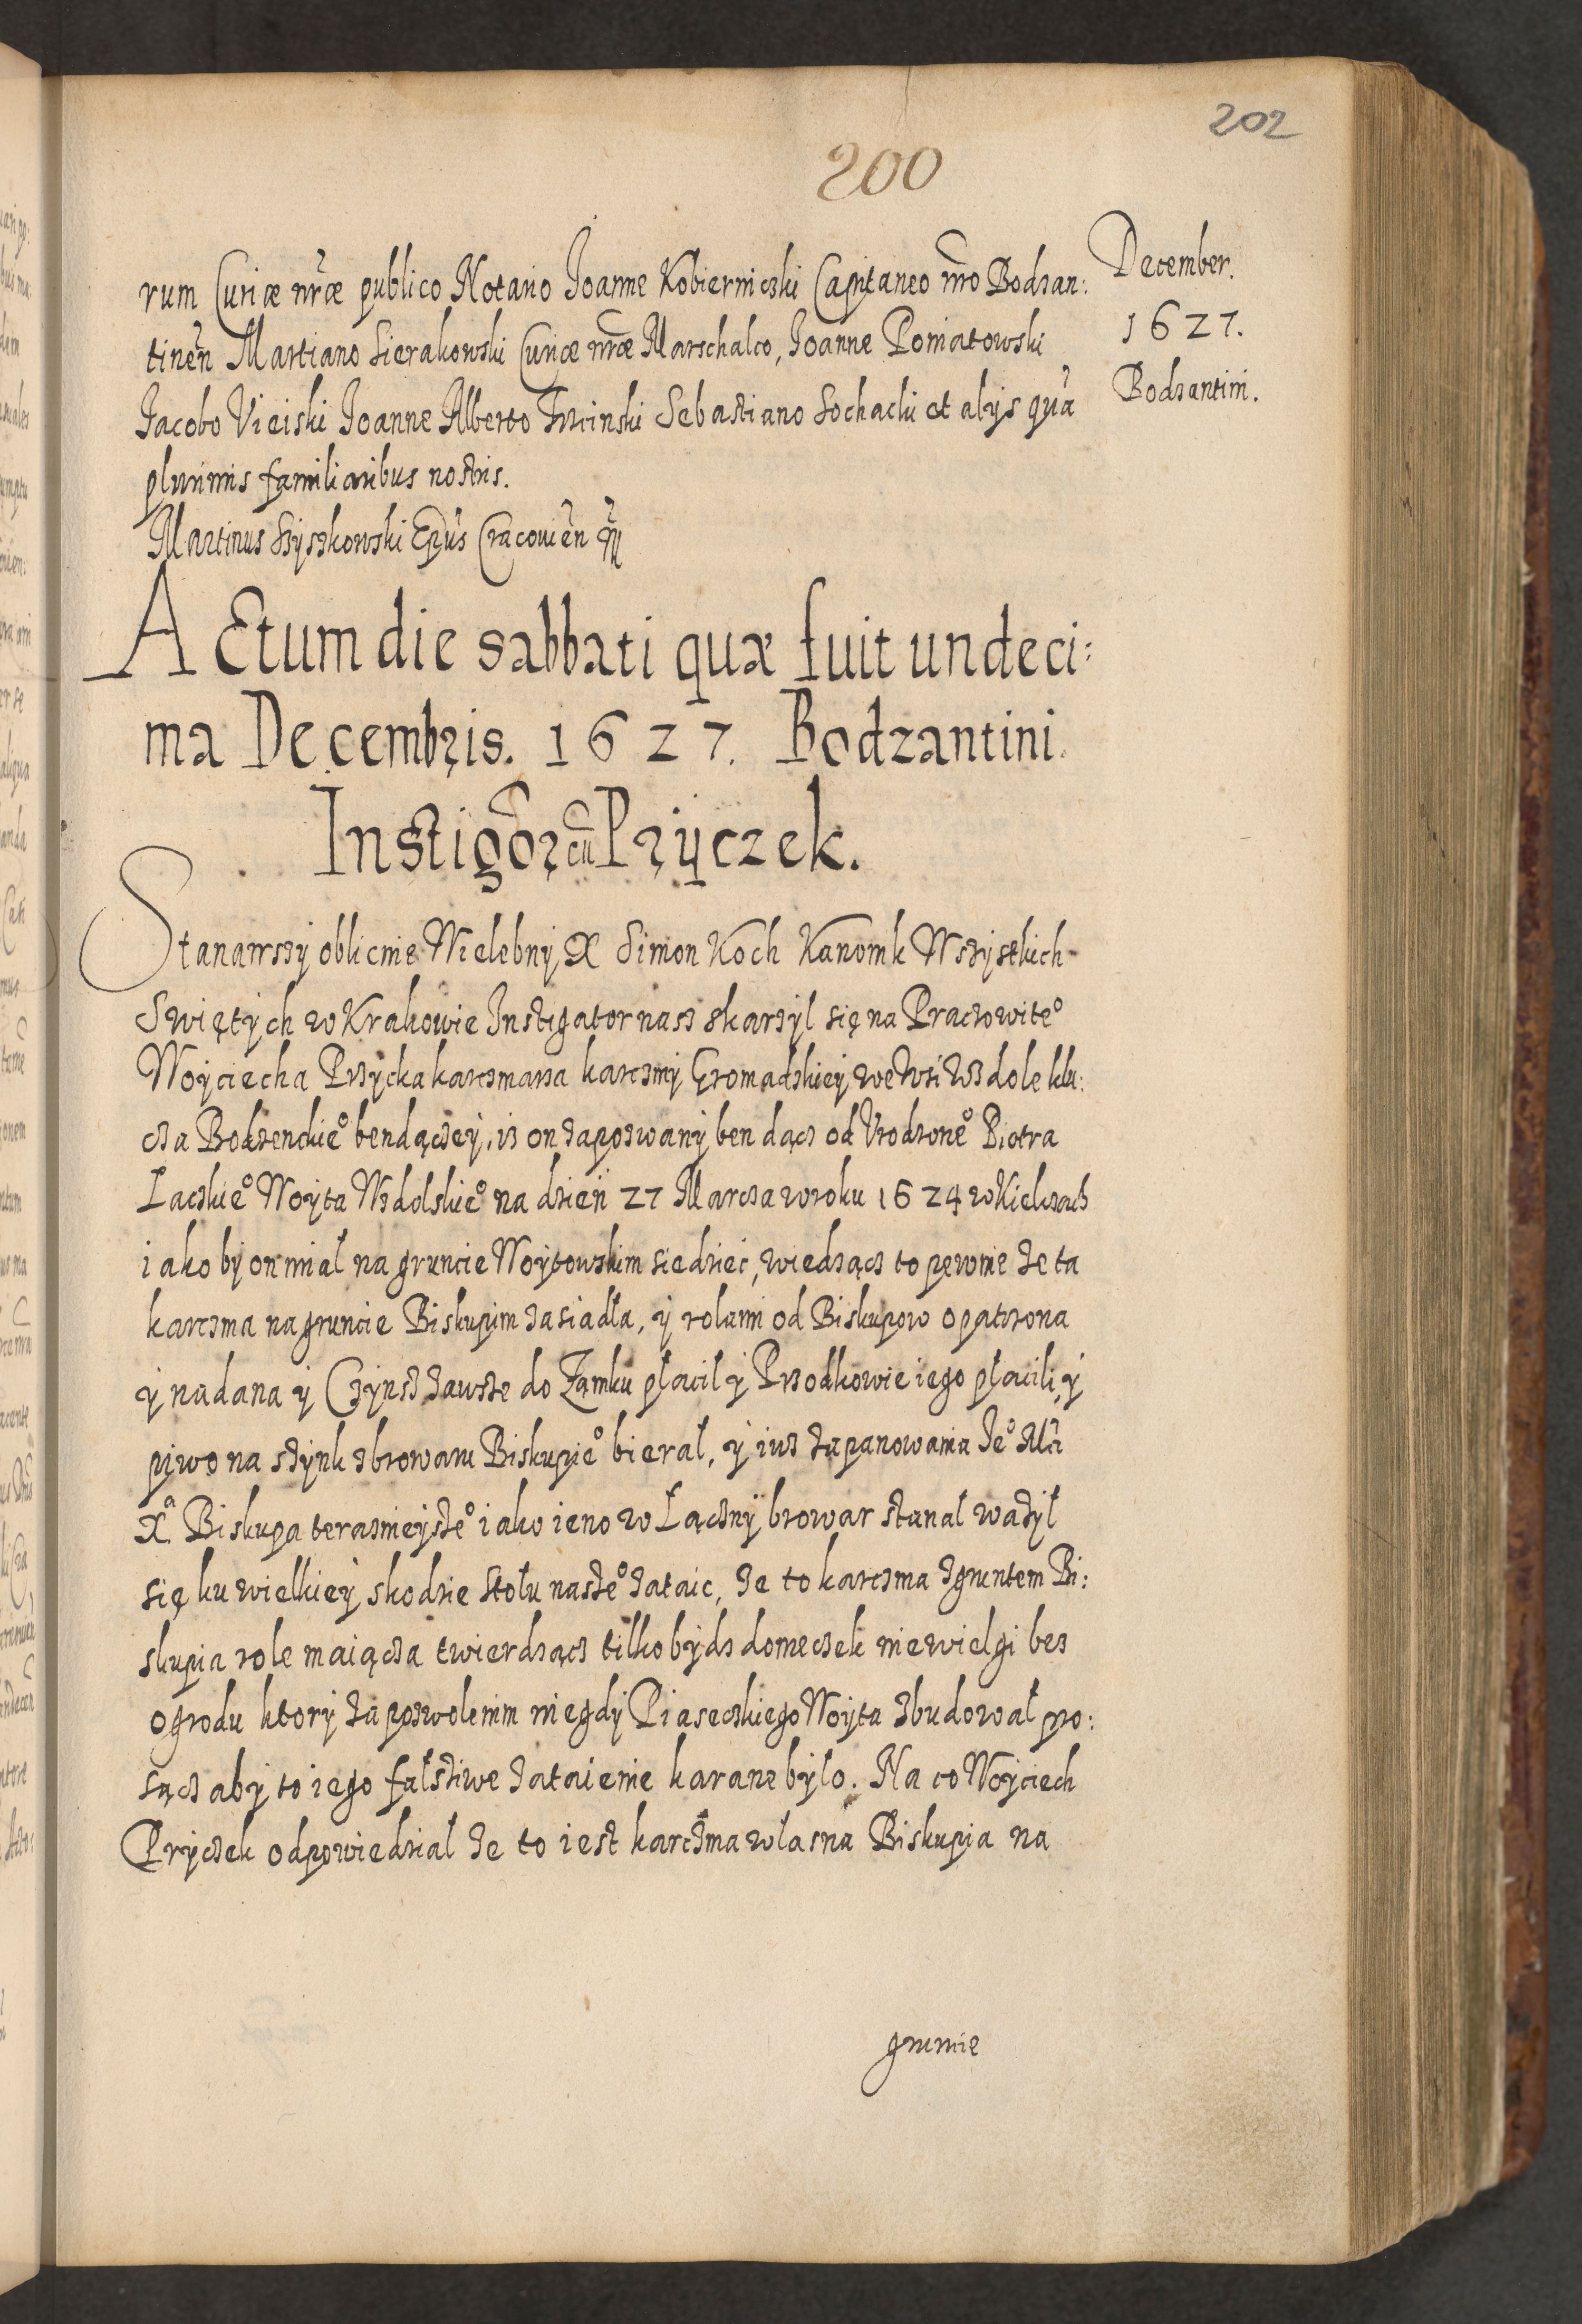 202
200
December.
1627.
Bodzantini.
rum Curiæ nr̃æ publico Notario Joanne Kobiernicski Capitaneo nr̃o Bodzan:
tineñ Martiano Sierakowski Curiæ nr̃æ Marschalco, Joanne Poniatowski
Jacobo Vieiski Joanne Alberto Sebastiano Sochacki et alijs qua᷈
plurimis familiaribus nostris.
Martinus Szyszkowski Ep̃us Cracovieñ
Actum die sabbati quæ fuit undeci:
ma Decembris. 1627. Bodzantini.
Instigõr cũ Prÿczek.
Stanawszÿ oblicznie Wielebnÿ X Simon Koch Kanonik Wszÿstkich
Swiętÿch w Krakowie Instigator nasz skarzÿl się na Praczowite°
Woÿciecha Przÿcka karczmarza karczmÿ Gromadzkieÿ we wsi Wzdole klu:
cza Bodzenckie° bendączeÿ, iz on zapozwanÿ bendącz od Vrodzone° Piotra
Laczkie° Woÿta Wzdolskie° na dzień 27 Marcza w roku 1624 w Kielczach
iakobÿ on miał na gruncie Woÿtowskim siedzieć, wiedzącz to pewnie ze ta
karczma na gruncie Biskupim zasiadła, ÿ rolami od Biskupow opatrzona
ÿ nadana ÿ Czÿnsz zawsze do Zamku płacil ÿ Przodkowie iego płacili, ÿ
piwo na szÿnk z browaru Biskupie° bierał, ÿ iusz za panowania Je° Mći
X° Biskupa teraznieÿsze° iako ieno w Łącznÿ browar stanał wazÿł
się ku wielkieÿ skodzie stołu nasze° zataic, ze to karczma z gruntem Bi:
skupia role maiącza twierdzącz tilko bÿdz domeczek niewielgi bez
ogrodu ktorÿ za pozwoleniim niegdÿ Piaseczkiego Woÿta zbudował pro:
sącz abÿ to iego fałsziwe zataienie karane bÿlo. Na co Woÿciech
Prÿczek odpowiedział ze to iest karczma własna Biskupia na
gruncie